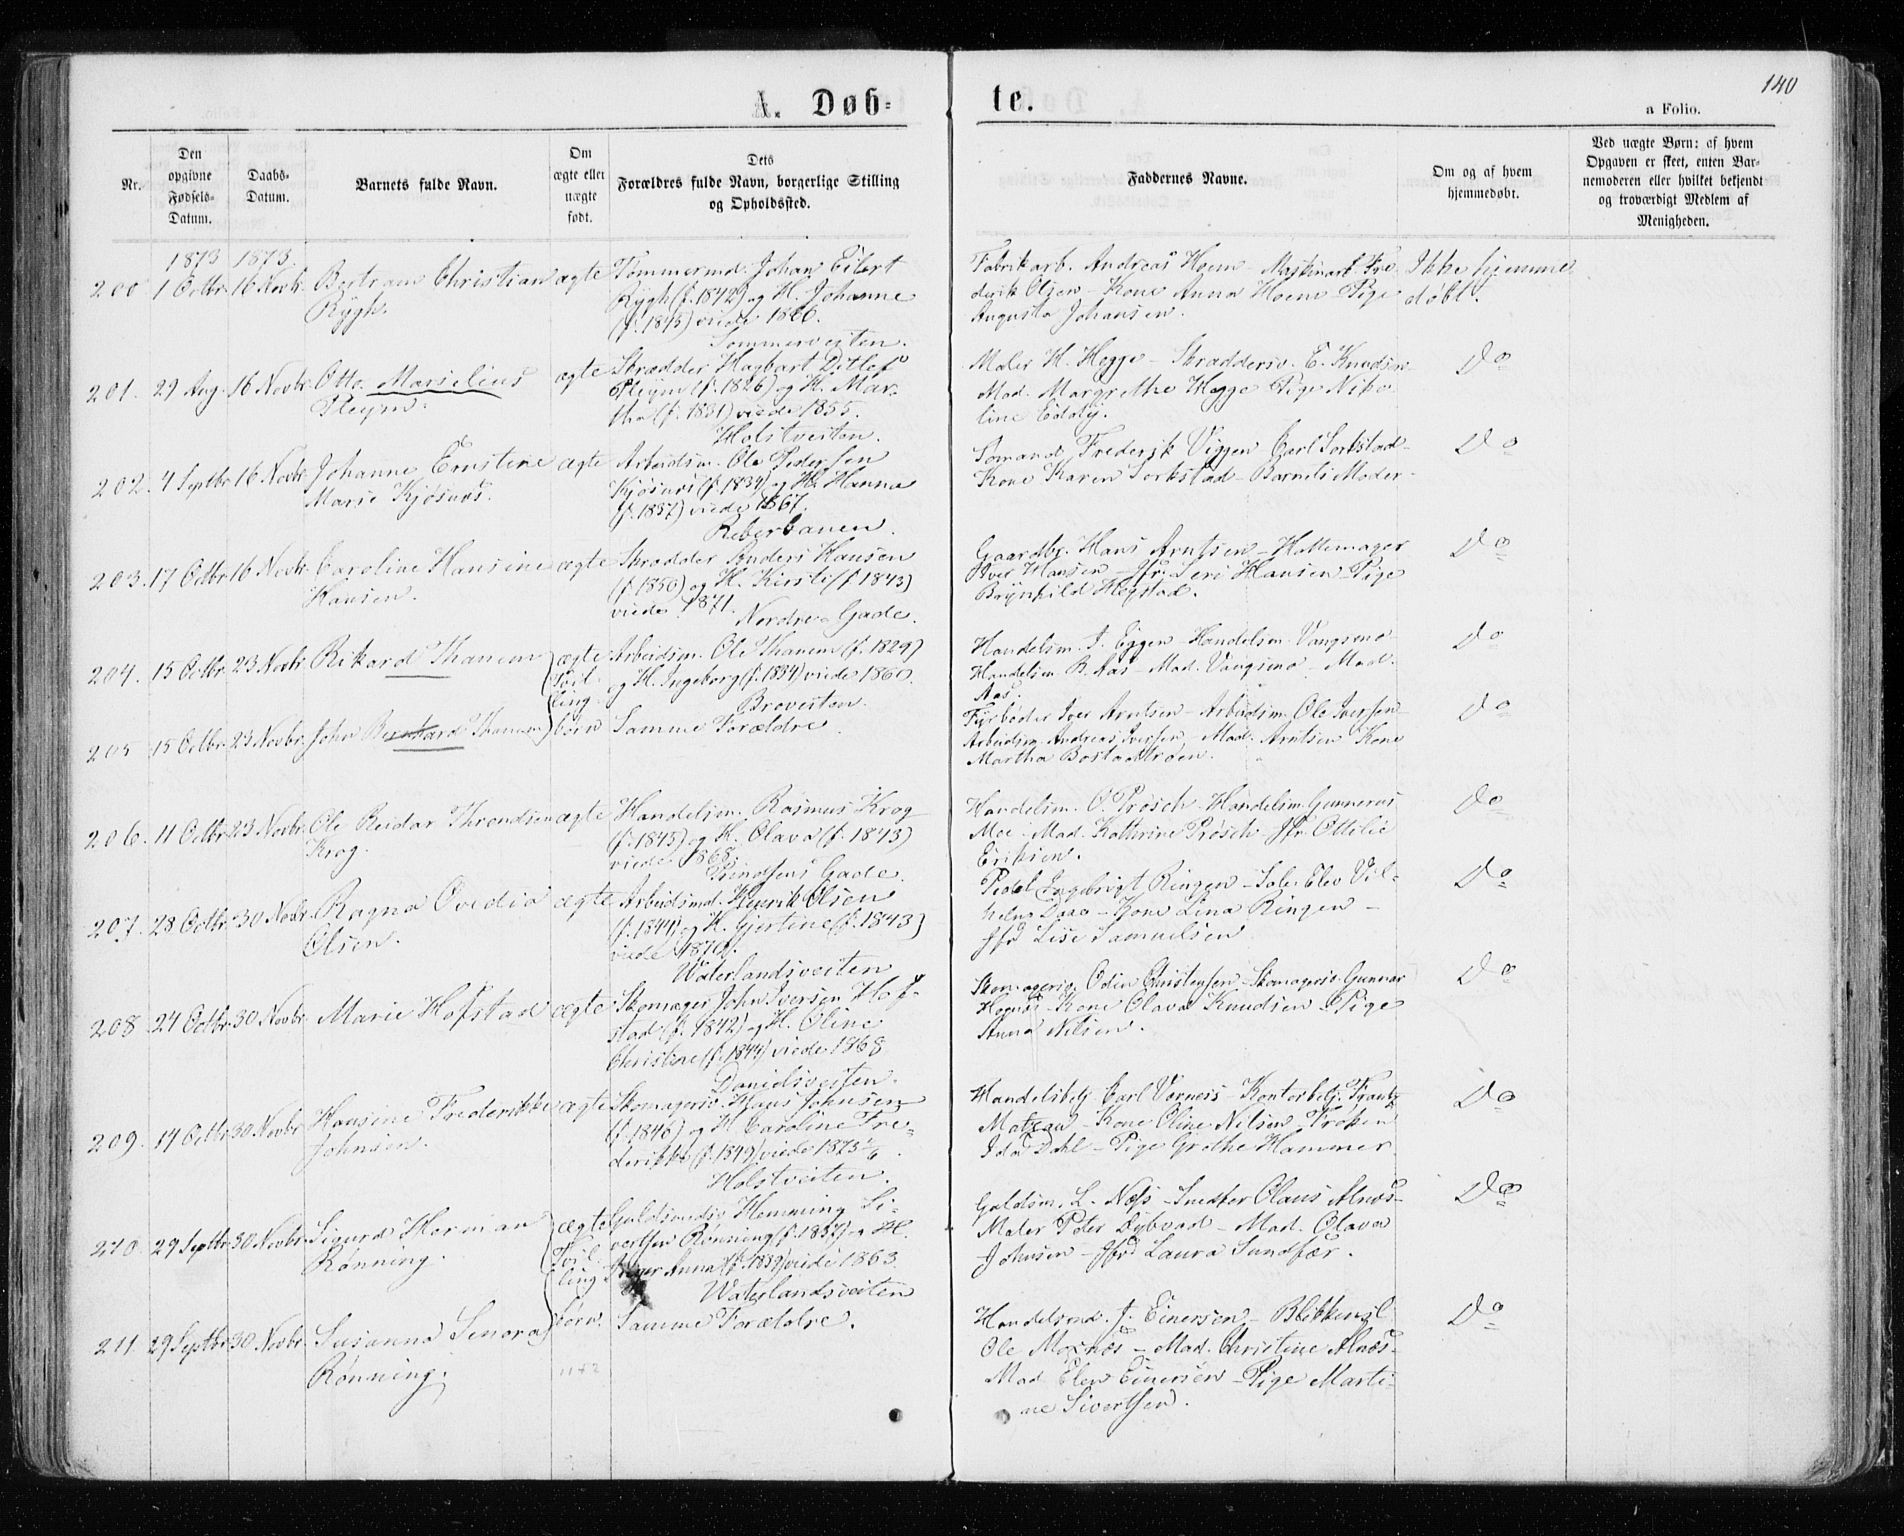 140
A. Døb-
te.
a Folio.
Nr.
Den opgivne Fødsels-Datum.
Daabs-Datum.
Barnets fulde Navn.
Om ægte eller uægte født.
Dets Forældres fulde Navn, borgerlige Stilling og Opholdssted.
Faddernes Navne.
Om og af hvem hjemmedøbt.
Ved uægte Børn: af hvem Opgaven er skeet, enten Barnemoderen eller hvilket bekjendt og troværdigt Medlem af Menigheden.
1873 1873.
200. 1 Octbr. 16 Novbr. Bertram Christian ægte Tømmermd. Johan Eilert
Rygh. Rygh (f. 1842) og H. Johanne
(f. 1845) viede 1866.
Sommerveiten.
Fabrikarb. Andreas Hoem - Maskinarb. Fre- Ikke hjemme
derik Olsen - Kone Anna Hoem - Pige døbt.
Augusta Johansen.
201. 29 Aug. 16 Novbr. Otto Marselius ægte Skrædder Hagbart Ditlef
Pleym. Pleym (f. 1826) og H. Mar-
tha (f. 1831) viede 1855.
Holstveiten.
Maler H. Hegge - Skræddersv. E. Knudsen Do
Mad. Margrethe Hegge Pige Niko
line
202. 4 Septbr. 16 Novbr. Johanne Ernstine ægte Arbeidsm. Ole Pedersen
Marie Kjøsnes. Kjøsnes (f. 1834) og H. Hanna
(f. 1837) viede 1867.
Reberbanen.
Sømand Frederik Viggen Carl Sorkstad Do
Kone Karen Sorkstad - Barnets Moder -
203. 17 Octbr. 16 Novbr. Caroline Hansine ægte Skrædder Anders Hansen
Hansen. (f. 1850) og H. Kirsti (f. 1843)
viede 1871.
Nordre Gade.
Gaardbr. Hans Arntsen - Hattemager Do
Iver Hansen - Jfr. Seri Hansen Pige
Brynhild Hegstad.
204. 15 Octbr. 23 Novbr. Rikard Thanem ægte Arbeidsm. Ole Thanem (f. 1829)
Tvil- og H. Ingeborg (f. 1834) viede 1860.
ling- Broveiten.
Handelsm. J. Eggen - Handelsm. Vangsmo Do
Handelsm. R. Aas - Mad. Vangsmo - Mad.
Aas.
205. 15 Octbr. 23 Novbr. John Bernhard Thanem børn Samme Forældre
Fyrbøder Iver Arntsen - Arbeidsm. Ole Iversen Do
Arbeidsm. Andreas Iversen - Mad. Arntsen Kone
Martha Bostadtrøen.
206. 11 Octbr. 23 Novbr. Ole Reidar Throndsen ægte Handelsm. Rasmus Krog
Krog. (f. 1845) og H. Olava (f. 1843)
viede 1868.
Prindsens Gade.
Handelsm. O. Prøsch. Handelsm. Gunnerus Do
Moe - Mad. Kathrine Prøsch - Jfr. Ottilie
Eriksen.
207. 28 Octbr. 30 Novbr. Ragna Ovedia ægte Arbeidsmd. Henrik Olsen
Olsen. (f. 1844) og H. Gjertine (f. 1843)
viede 1870.
Waterlandsveiten
Pedel Ingebrigt Ringen - Elev Vil- Do
helm Daae - Kone Lina Ringen -
Jfr. Lise Samuelsen
208. 24 Octbr. 30 Novbr. Marie Hofstad ægte Skomager John Iversen Hof-
stad (f. 1842) og H. Oline
Christine (f. 1844) viede 1868
Danielsveiten.
Skomagersv. Odin Christensen - Skomagersv. Gunnar Do
Kone Olava Knudsen Pige
Anna Nilsen.
209. 14 Octbr. 30 Novbr. Hansine Frederikke ægte Skomagersv. Hans Johnsen
Johnsen. (f. 1846) og H. Caroline Fre-
derikke (f. 1849) viede 1873
Holstveiten.
Handelsbetj. Carl Vernes - Kontorbetj. Frantz Do
Motzau - Kone Oline Nilsen Frøken
Ida Dahl - Pige Grethe Hammer
210. 29 Septbr. 30 Novbr. Sigurd Herman ægte Guldsmedsv. Hemming Si-
Rønning. Tvil- vertsen Rønning (f. 1837) og H.
ling- Anna (f. 1839) viede 1863.
Waterlandsveiten
Guldsm. L. Næss - Snedker Olaus Alnæs - Do
Maler Peter Dybvad - Mad. Olava
Johnsen - Jfr. Laura Sundfær.
211. 29 Septbr. 30 Novbr. Susanna Lenora børn. Samme Forældre.
Rønning.
Handelsmd. J. Einersen - Blikkensl. Do
Ole Moxnæs - Mad. Christine Alnæs -
Mad. Elen Einersen - Pige Marti-
ne Sivertsen.